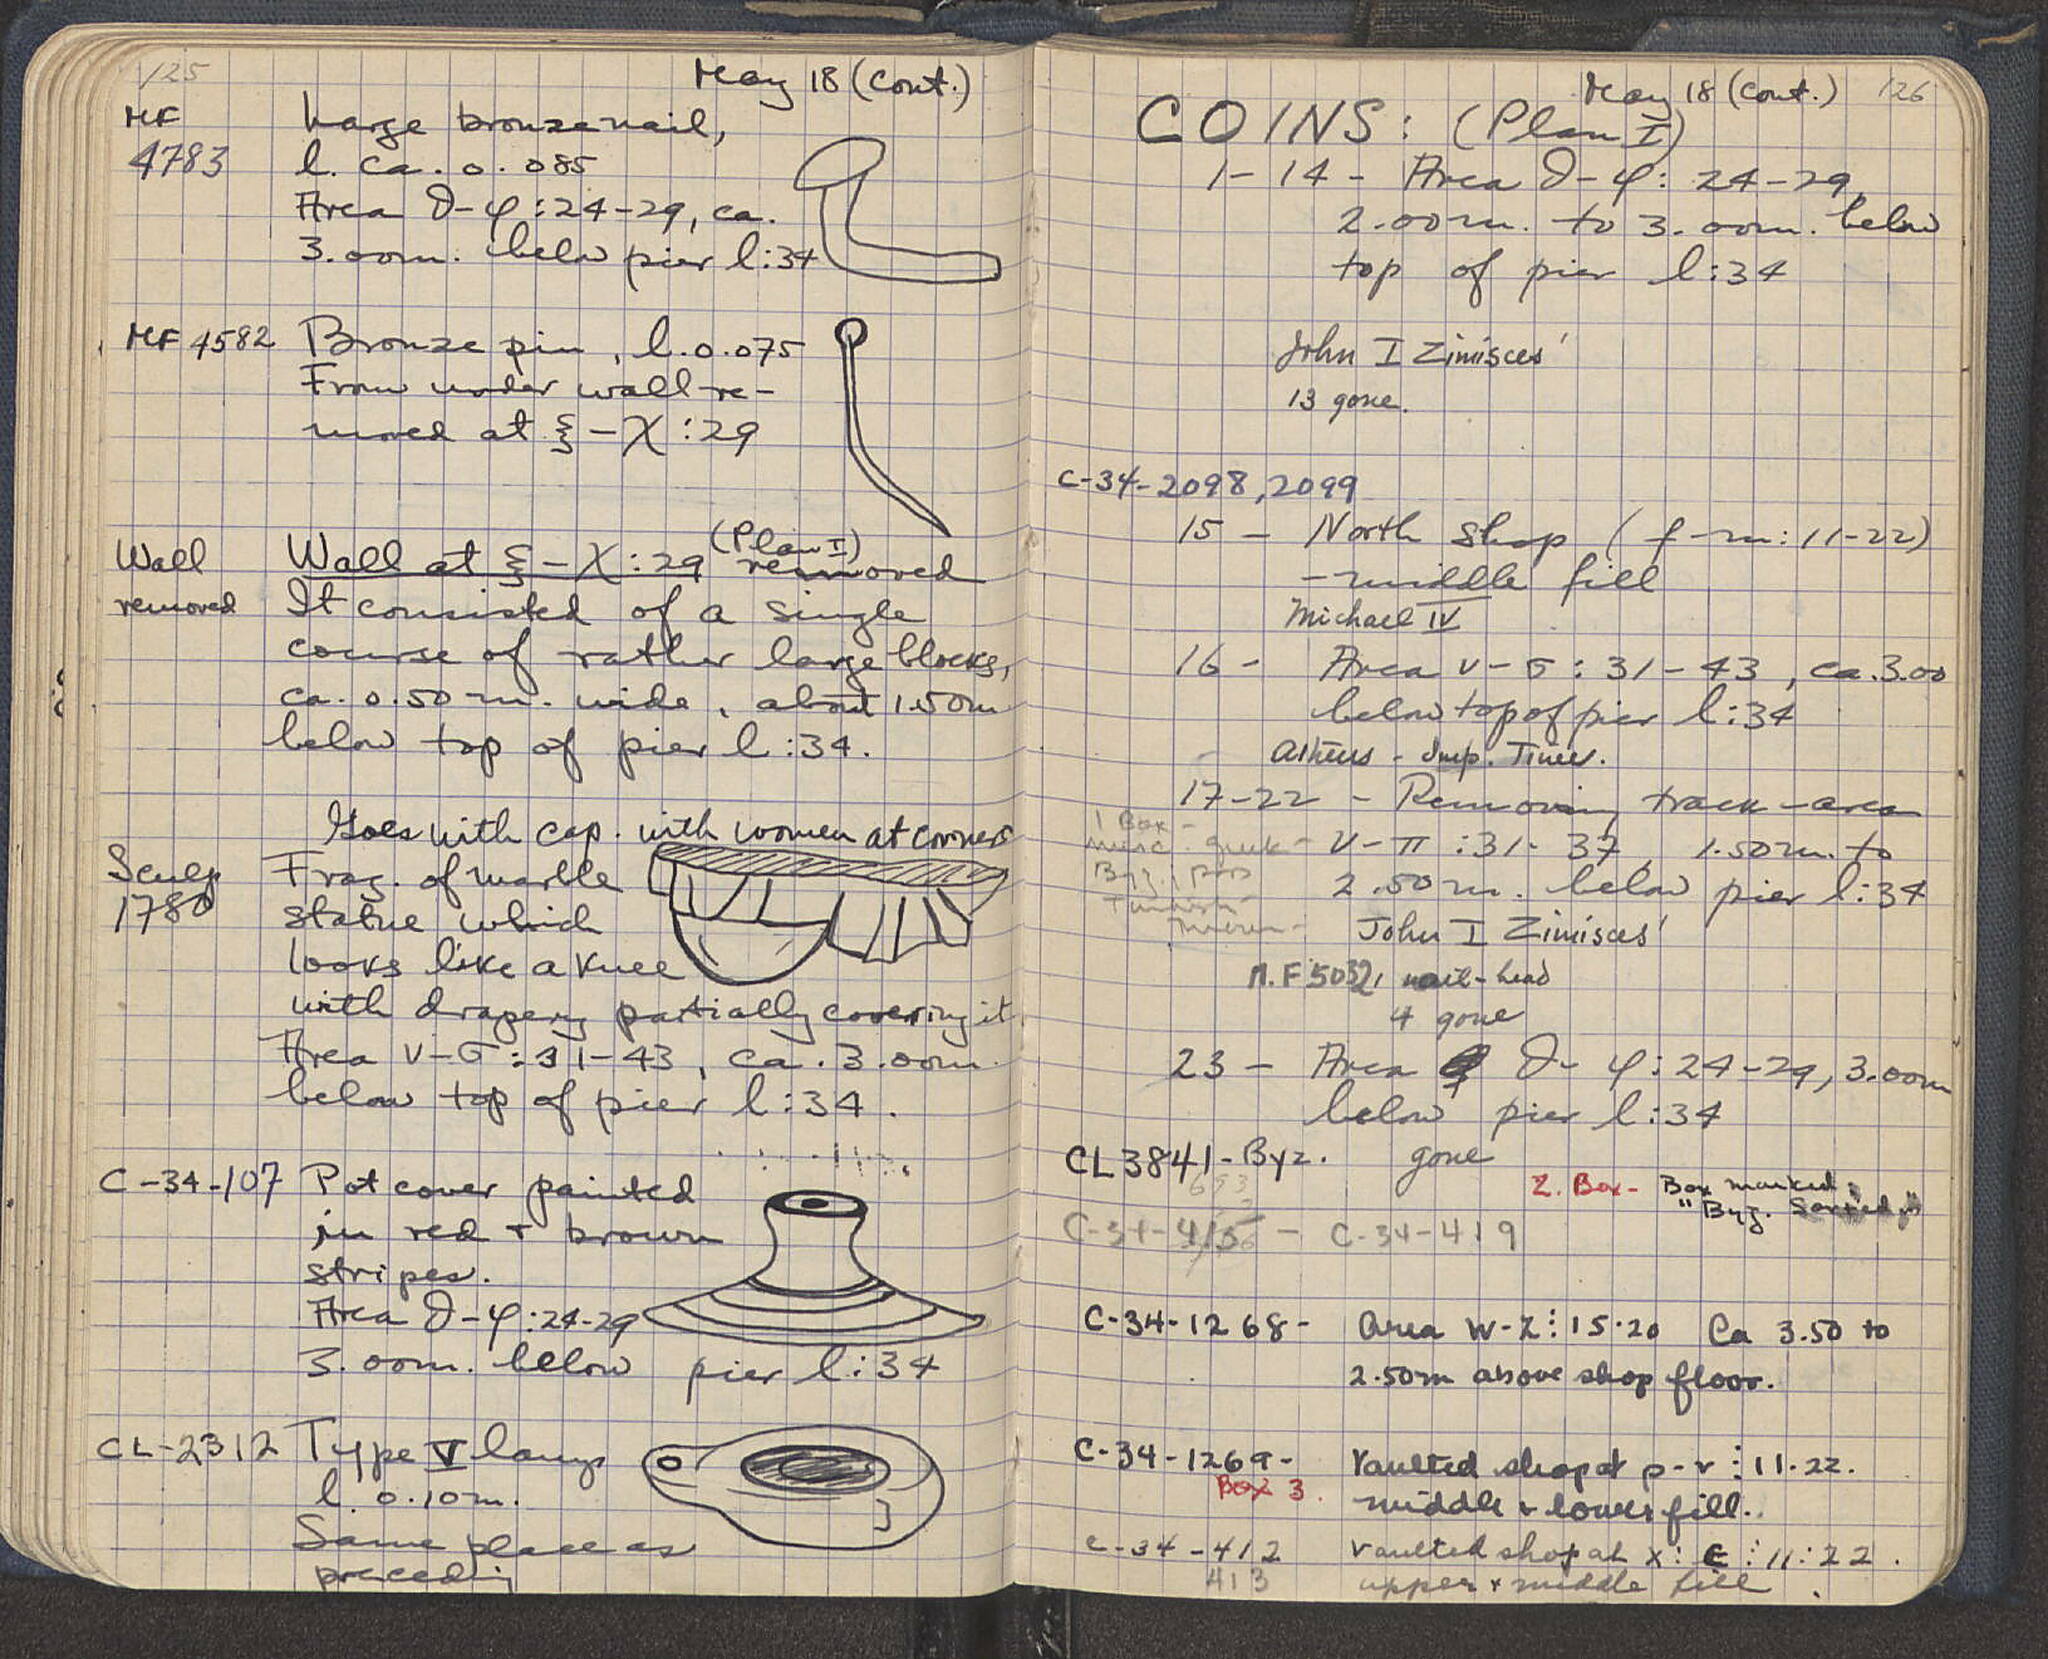 125
May 18 (cont.)
MF
4783
Large bronze nail,
l. ca. 0.085
Area ϑ-φ:24-29, ca.
3.00m. below pier l:34
MF 4582
Bronze pin, l. 0.075
From under wall re-
moved at ξ-χ:29
Wall
removed
(Plan I)
Wall at ξ-χ:29 removed
It consisted of a single
course of rather large blocks,
ca. 0.50 m. wide, about 1.50m
below top of pier l:34.
Goes with cap. with women at corners
Sculp
1780
Frag. of marble
statue which
looks like a knee
with drapery partially covering it
Area ν-σ:31-43, ca. 3.00m.
below top of pier l:34.
C-34-107
Pot cover painted
in red + brown
stripes.
Area ϑ-φ:24-29
3.00m. below pier l:34
CL-2312
Type V lamp
l. 0.10m.
Same place as
preceding
May 18 (cont.)
126
COINS: (Plan I)
1-14 - Area ϑ-φ: 24-29,
2.00m. to 3.00m. below
top of pier l:34
John I Zimisces'
13 gone.
C-34-2098, 2099
15 - North Shop (f-m:11-22)
-middle fill
Michael IV
16 - Area ν-σ:31-43, ca. 3.00
below top of pier l:34
Athens - Imp. Times.
17-22 - Removing track-area
ν-π:31-37, 1.50m. to
2.50m. below pier l:34
1 Box -
misc. Greek -
Byz.,
Turkish
John I Zimisces'
M.F 5032, nail-head
4 gone
23 - Area ϑ-φ:24-29, 3.00m
below pier l:34
CL 3841 - Byz.
gone
Z. Box - Box marked
"Byz. Sorted"
C-34-419
C-34-1268- Area W-Z:15-20 Ca 3.50 to
2.50m above shop floor.
C-34-1269- Vaulted shop at p-v:11-22.
Box 3.
middle + lower fill.
C-34-412
413
Vaulted shop at x:E:11:22.
upper + middle fill